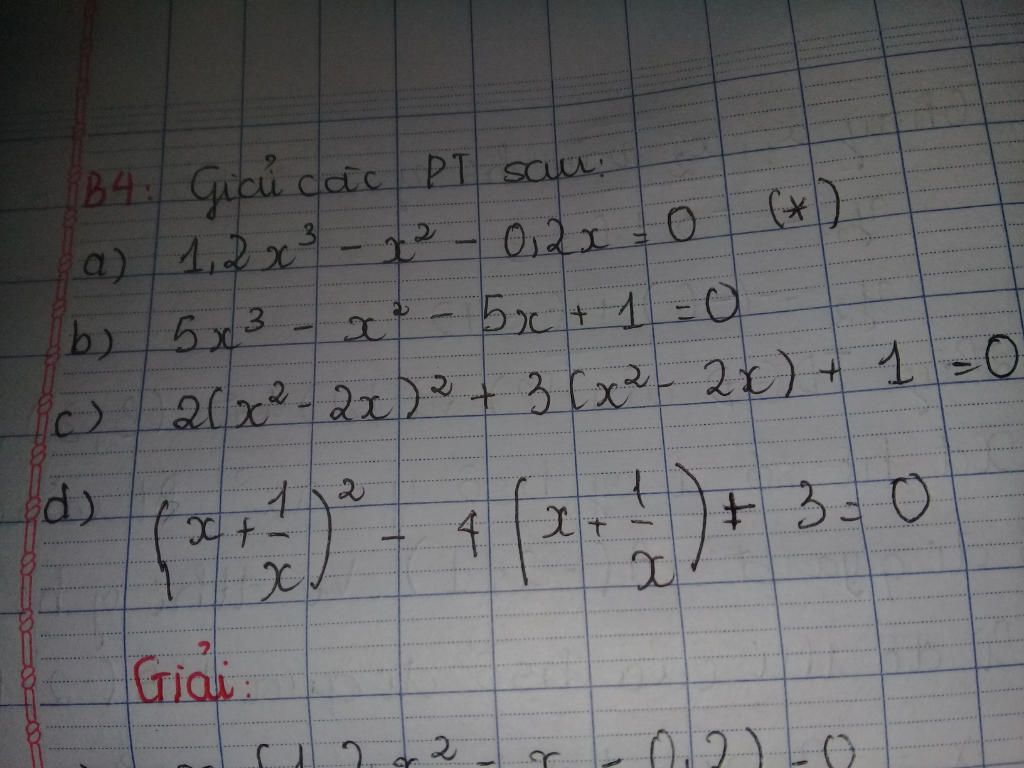 B4: Giải các PT sau:
a) 1,2x³ - x² - 0,2x = 0 (*)
b) 5x³ - x² - 5x + 1 = 0
c) 2(x² - 2x)² + 3(x² - 2x) + 1 = 0
d) (x + 1/x)² - 4(x + 1/x) + 3 = 0
Giải:
(1,2x² - x - 0,2) = 0